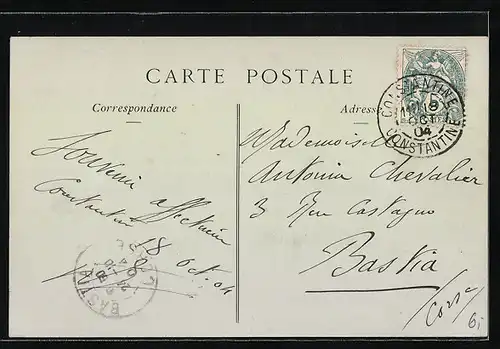 CARTE POSTALE
Correspondance
Adresse
CONSTANTINE
18
OCT
04
CONSTANTINE
Souvenir affectueux
Constantine
18 Oct. 04
Mademoiselle
Antonia Chevalier
3 Rue Castagno
Bastia
(Corse)
BASTIA
6,